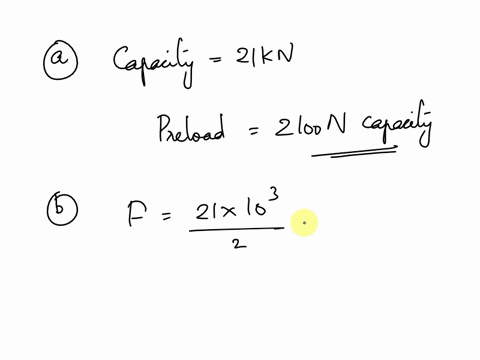 a Capacity = 21KN
Preload = 2100N capacity
b F = 21 x 10³ / 2